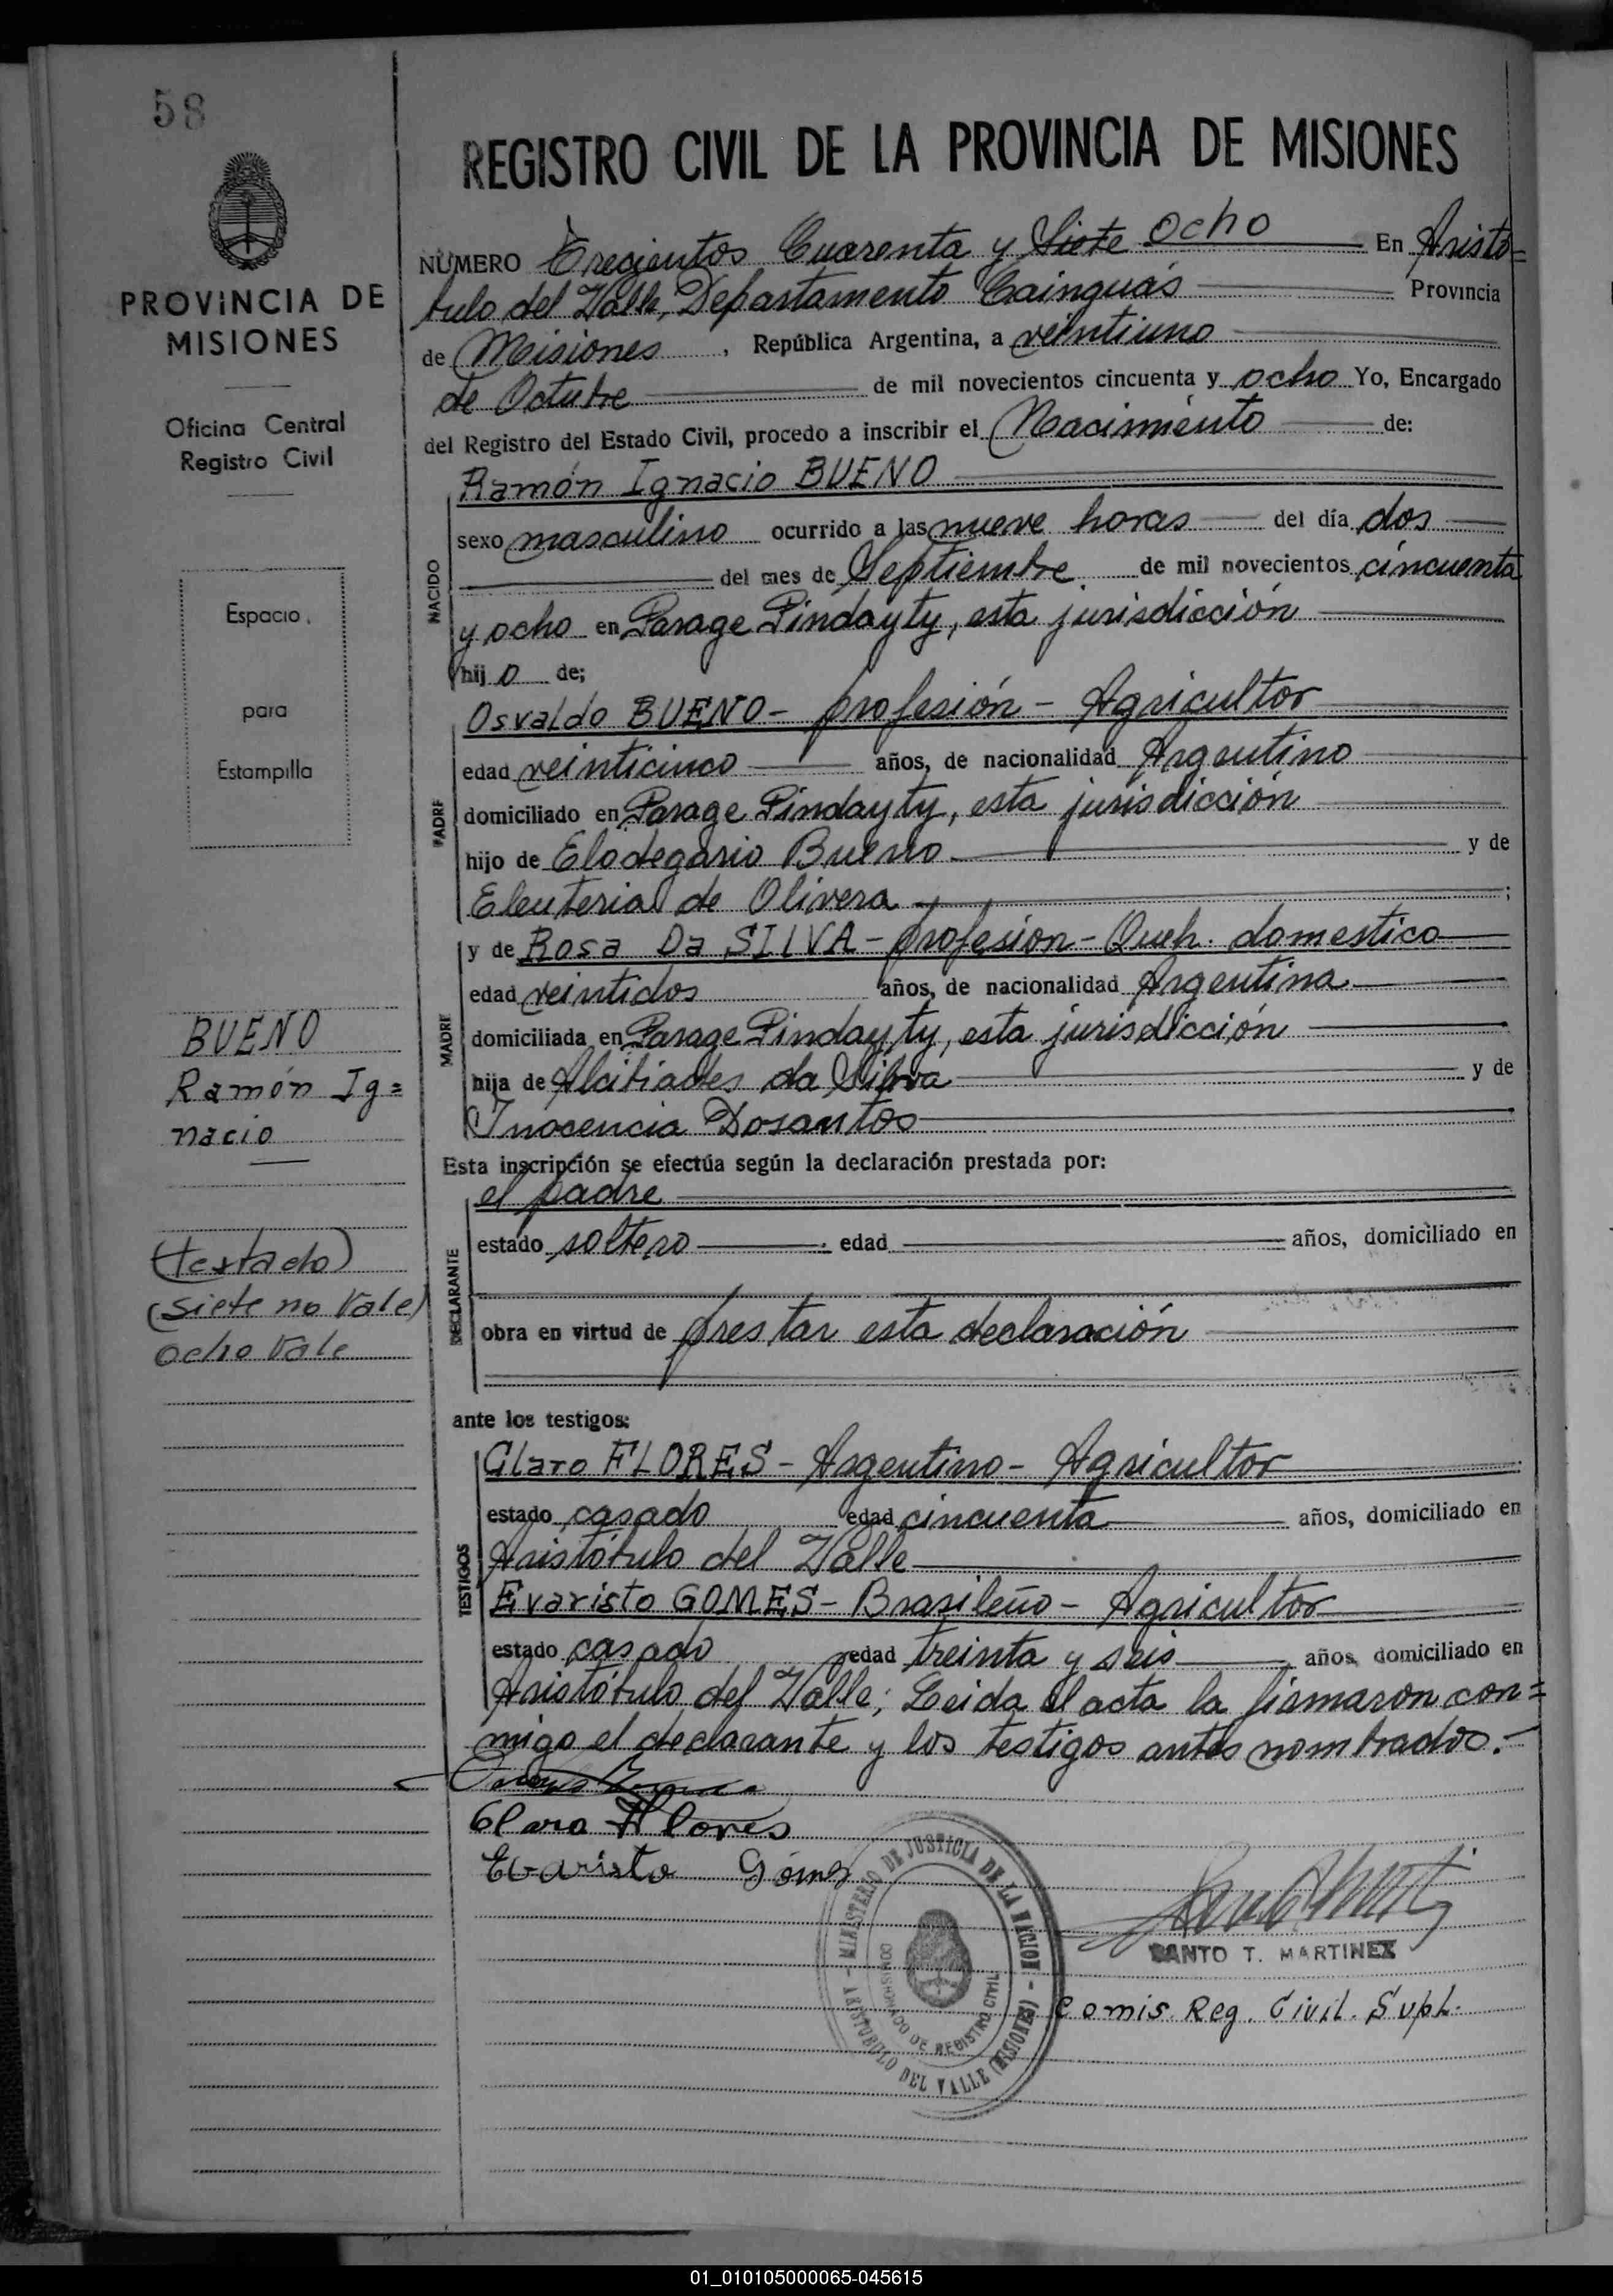 58
PROVINCIA DE
MISIONES
Oficina Central
Registro Civil
Espacio
para
Estampilla
BUENO
Ramón Ig=
nacio
(testado)
(siete no vale)
ocho vale
REGISTRO CIVIL DE LA PROVINCIA DE MISIONES
NÚMERO Trecientos Cuarenta y Siete ocho En Aristó=
bulo del Valle, Departamento Cainguás Provincia
de Misiones, República Argentina, a veintiuno
de Octubre de mil novecientos cincuenta y ocho Yo, Encargado
del Registro del Estado Civil, procedo a inscribir el Nacimiento de:
Ramón Ignacio BUENO
NACIDO
sexo masculino ocurrido a las nueve horas del día dos
del mes de Septiembre de mil novecientos cincuenta
y ocho en Parage Pindayty, esta jurisdicción
hij o de;
Osvaldo BUENO - profesión - Agricultor
PADRE
edad veinticinco años, de nacionalidad Argentino
domiciliado en Parage Pindayty, esta jurisdicción
hijo de Elodegario Bueno y de
Eleuteria de Olivera ;
y de Rosa Da SILVA - profesión - Queh. domestico
MADRE
edad veintidos años, de nacionalidad Argentina
domiciliada en Parage Pindayty, esta jurisdicción
hija de Alcibiades da Silva y de
Inocencia Dosantos
Esta inscripción se efectúa según la declaración prestada por:
el padre
DECLARANTE
estado soltero edad años, domiciliado en
obra en virtud de prestar esta declaración
ante los testigos:
Claro FLORES - Argentino - Agricultor
TESTIGOS
estado casado edad cincuenta años, domiciliado en
Aristóbulo del Valle
Evaristo GOMES - Brasileño - Agricultor
estado casado edad treinta y seis años, domiciliado en
Aristóbulo del Valle; Leida el acta la firmaron con=
migo el declarante y los testigos antes nombrados.-
Claro Flores
Evaristo Gómes
MINISTERIO DE JUSTICIA DE LA NACION - ARISTOBULO DEL VALLE (MISIONES)
DE REGISTRO CIVIL
SANTO T. MARTINEZ
Comis. Reg. Civil. Supl.
01_010105000065-045615